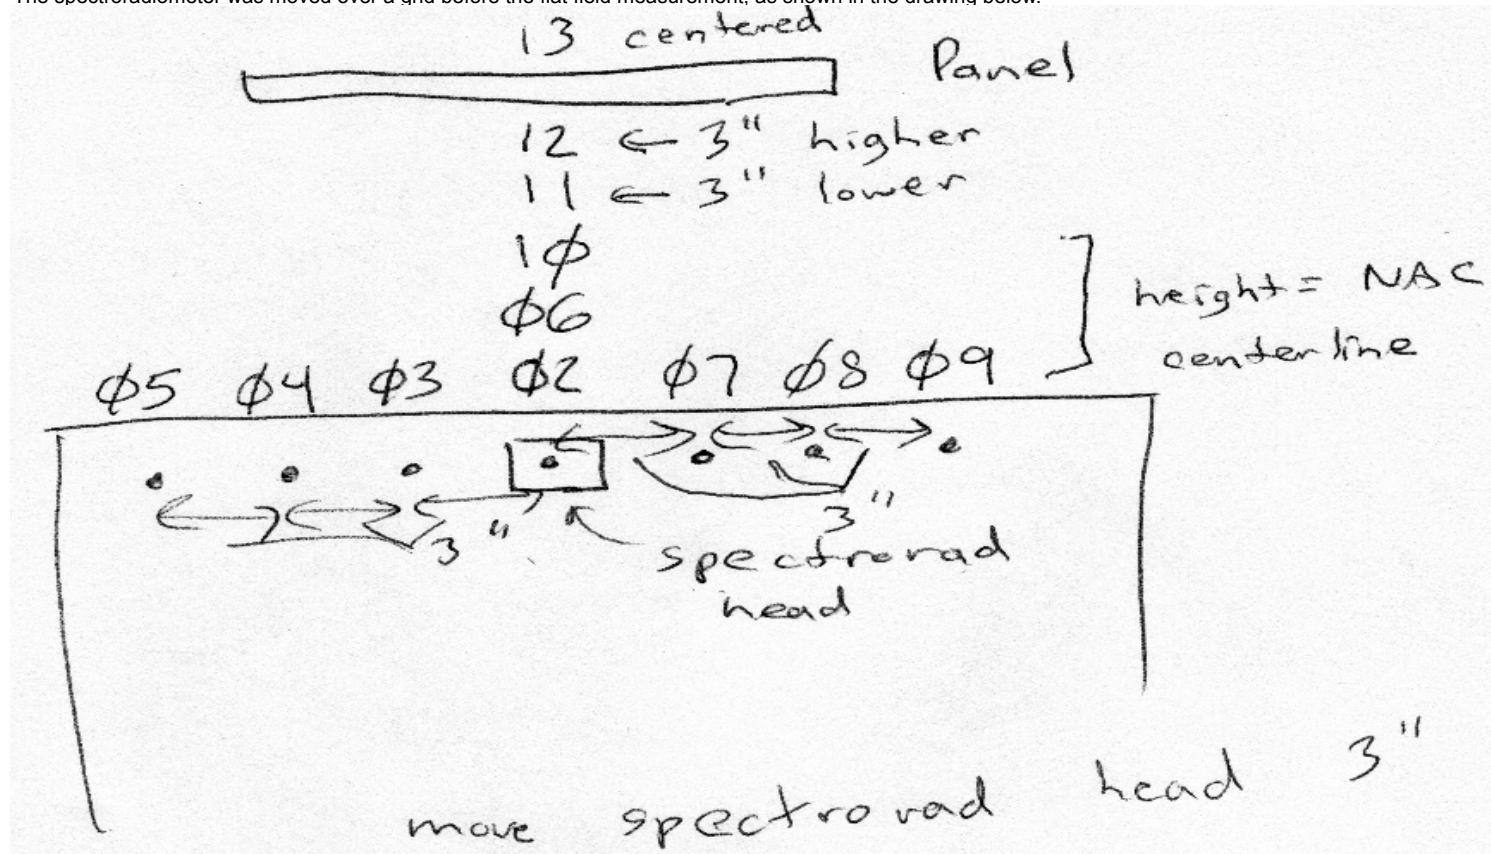 The spectroradiometer was moved over a grid before the flat field measurement, as shown in the drawing below.
13 centered
Panel
12 ← 3" higher
11 ← 3" lower
1φ
φ6
height = NAC
centerline
φ5 φ4 φ3 φ2 φ7 φ8 φ9
3"
3"
spectrorad
head
move spectrorad head 3"